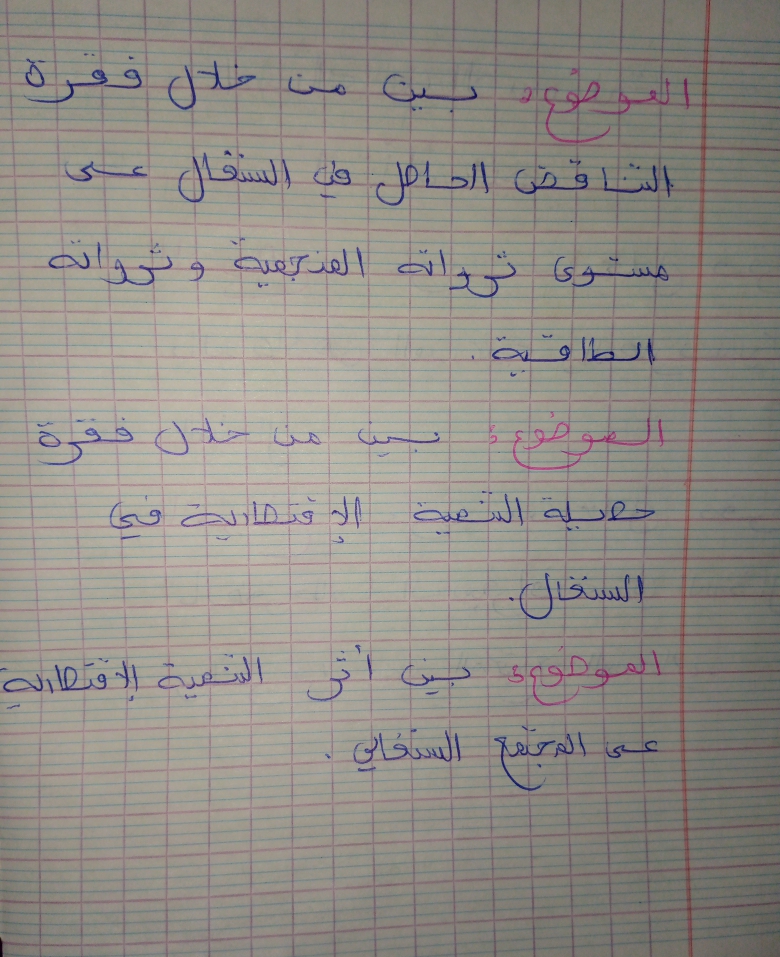 الموضوع: بين من خلال فقرة
التناقض الحاصل في السنغال على
مستوى ثرواته المنجمية وثرواته
الطاقية.
الموضوع: بين من خلال فقرة
حصيلة التنمية الإقتصادية في
السنغال.
الموضوع: بين أثر التنمية الإقتصادية
على المجتمع السنغالي.